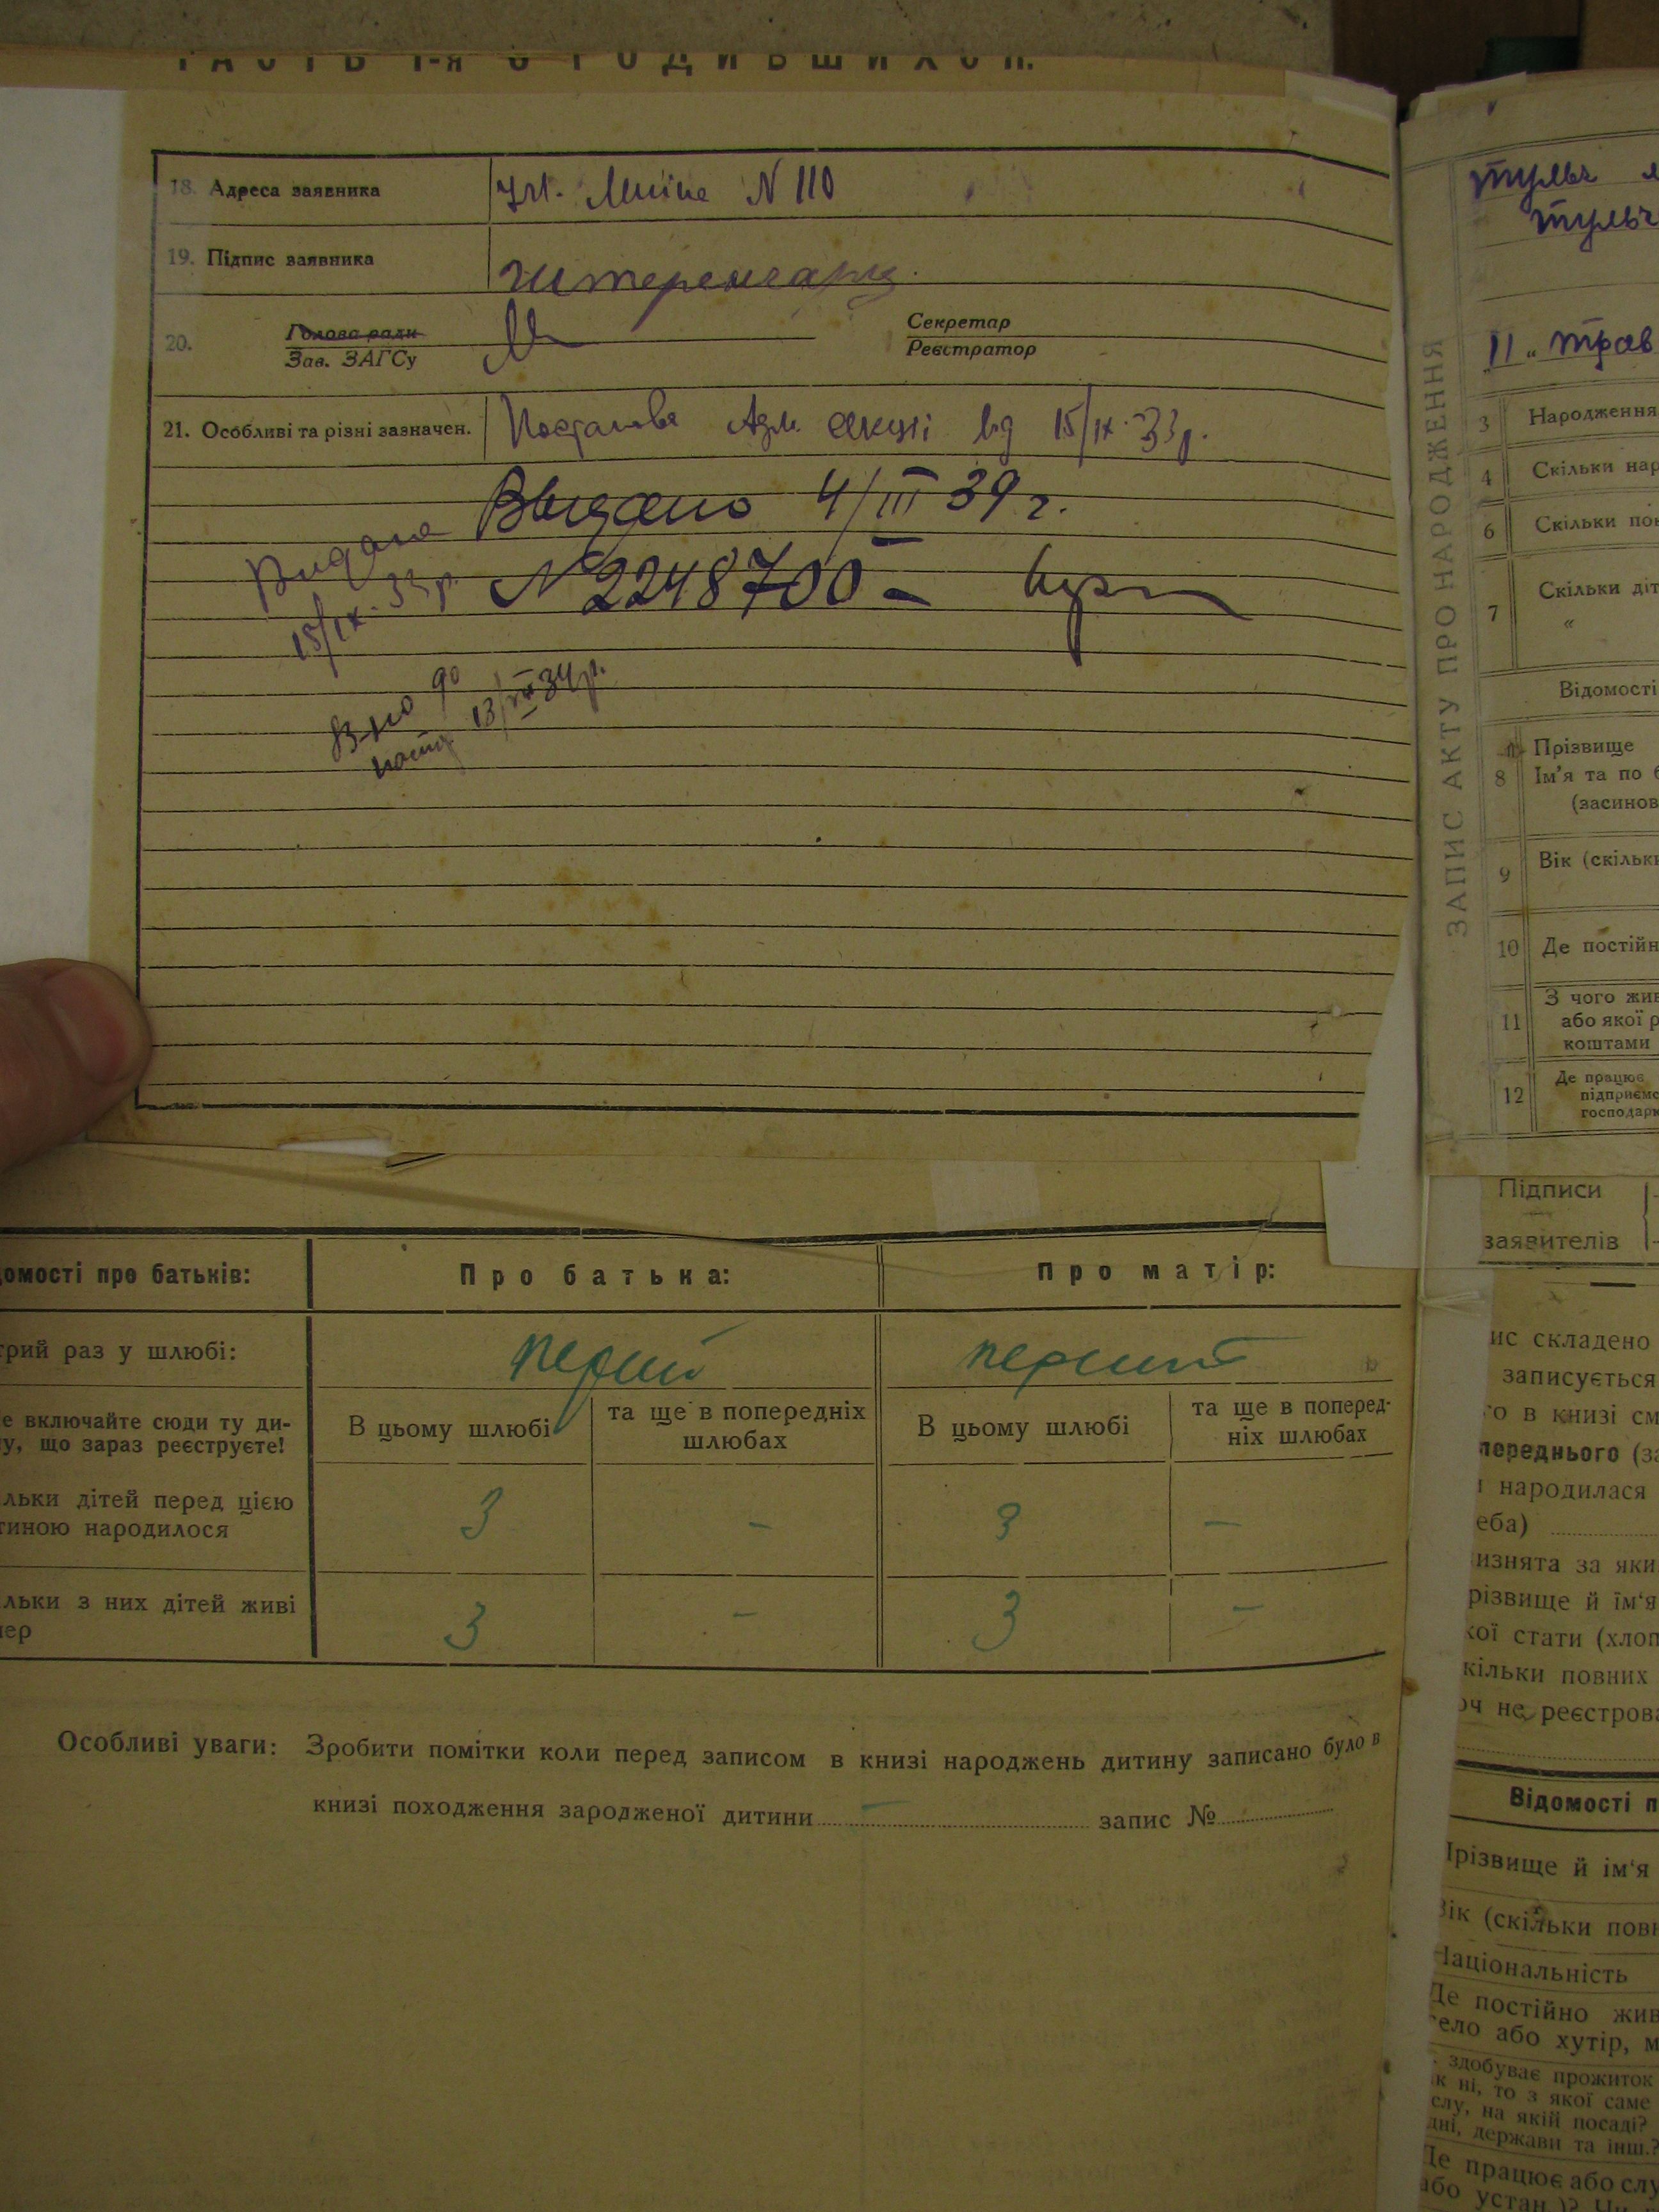 ЧАСТЬ I-я О РОДИВШИХСЯ.
18. Адреса заявника
Ул. Леніна N 110
19. Підпис заявника
20. Голова ради
Зав. ЗАГСу
Секретар
Реєстратор
21. Особливі та різні зазначен.
Постанова Адм. секції від 15/IX-33р.
Выдано 4/III 39 г.
Видана
15/IX-33р.
N 2248700
13/VII 34р.
домості про батьків:
Про батька:
Про матір:
трий раз у шлюбі:
перший
перший
е включайте сюди ту ди-
ну, що зараз реєструєте!
В цьому шлюбі
та ще в попередніх
шлюбах
В цьому шлюбі
та ще в поперед-
ніх шлюбах
льки дітей перед цією
тиною народилося
3 - 3 -
льки з них дітей живі
пер
3 - 3 -
Особливі уваги: Зробити помітки коли перед записом в книзі народжень дитину записано було в
книзі походження зародженої дитини - запис №
ЗАПИС АКТУ ПРО НАРОДЖЕННЯ
тульч
тульч
"11" трав
3 Народження
4 Скільки нар
6 Скільки пов
7 Скільки діт
"
Відомості
8 Прізвище
Ім'я та по б
(засинов
9 Вік (скільки
10 Де постійн
11 З чого жив
або якої р
коштами
12 Де працює
підприємс
господарк
Підписи
заявителів
ис складено
записується
го в книзі см
переднього (за
и народилася
еба)
изнята за яки
різвище й їм'я
кої стати (хлоп
кільки повних
оч не реєстров
Відомості п
Прізвище й ім'я
Вік (скільки повн
Національність
Де постійно жив
село або хутір, м
здобуває прожиток
к ні, то з якої саме
слу, на якій посаді?
дні, держави та інш.?
Де працює або слу
або устан.)?